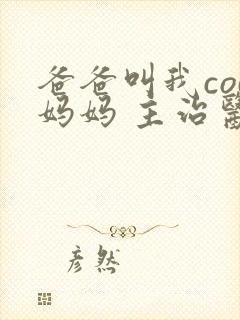 爸爸叫我co
妈妈 主治醫
彦然